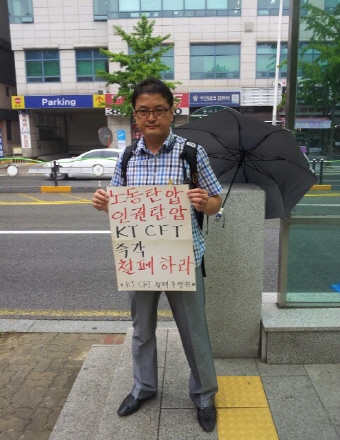 Parking
노동탄압
인권탄압
KT CFT
즉각
철폐하라
KT CFT 철폐 투쟁위